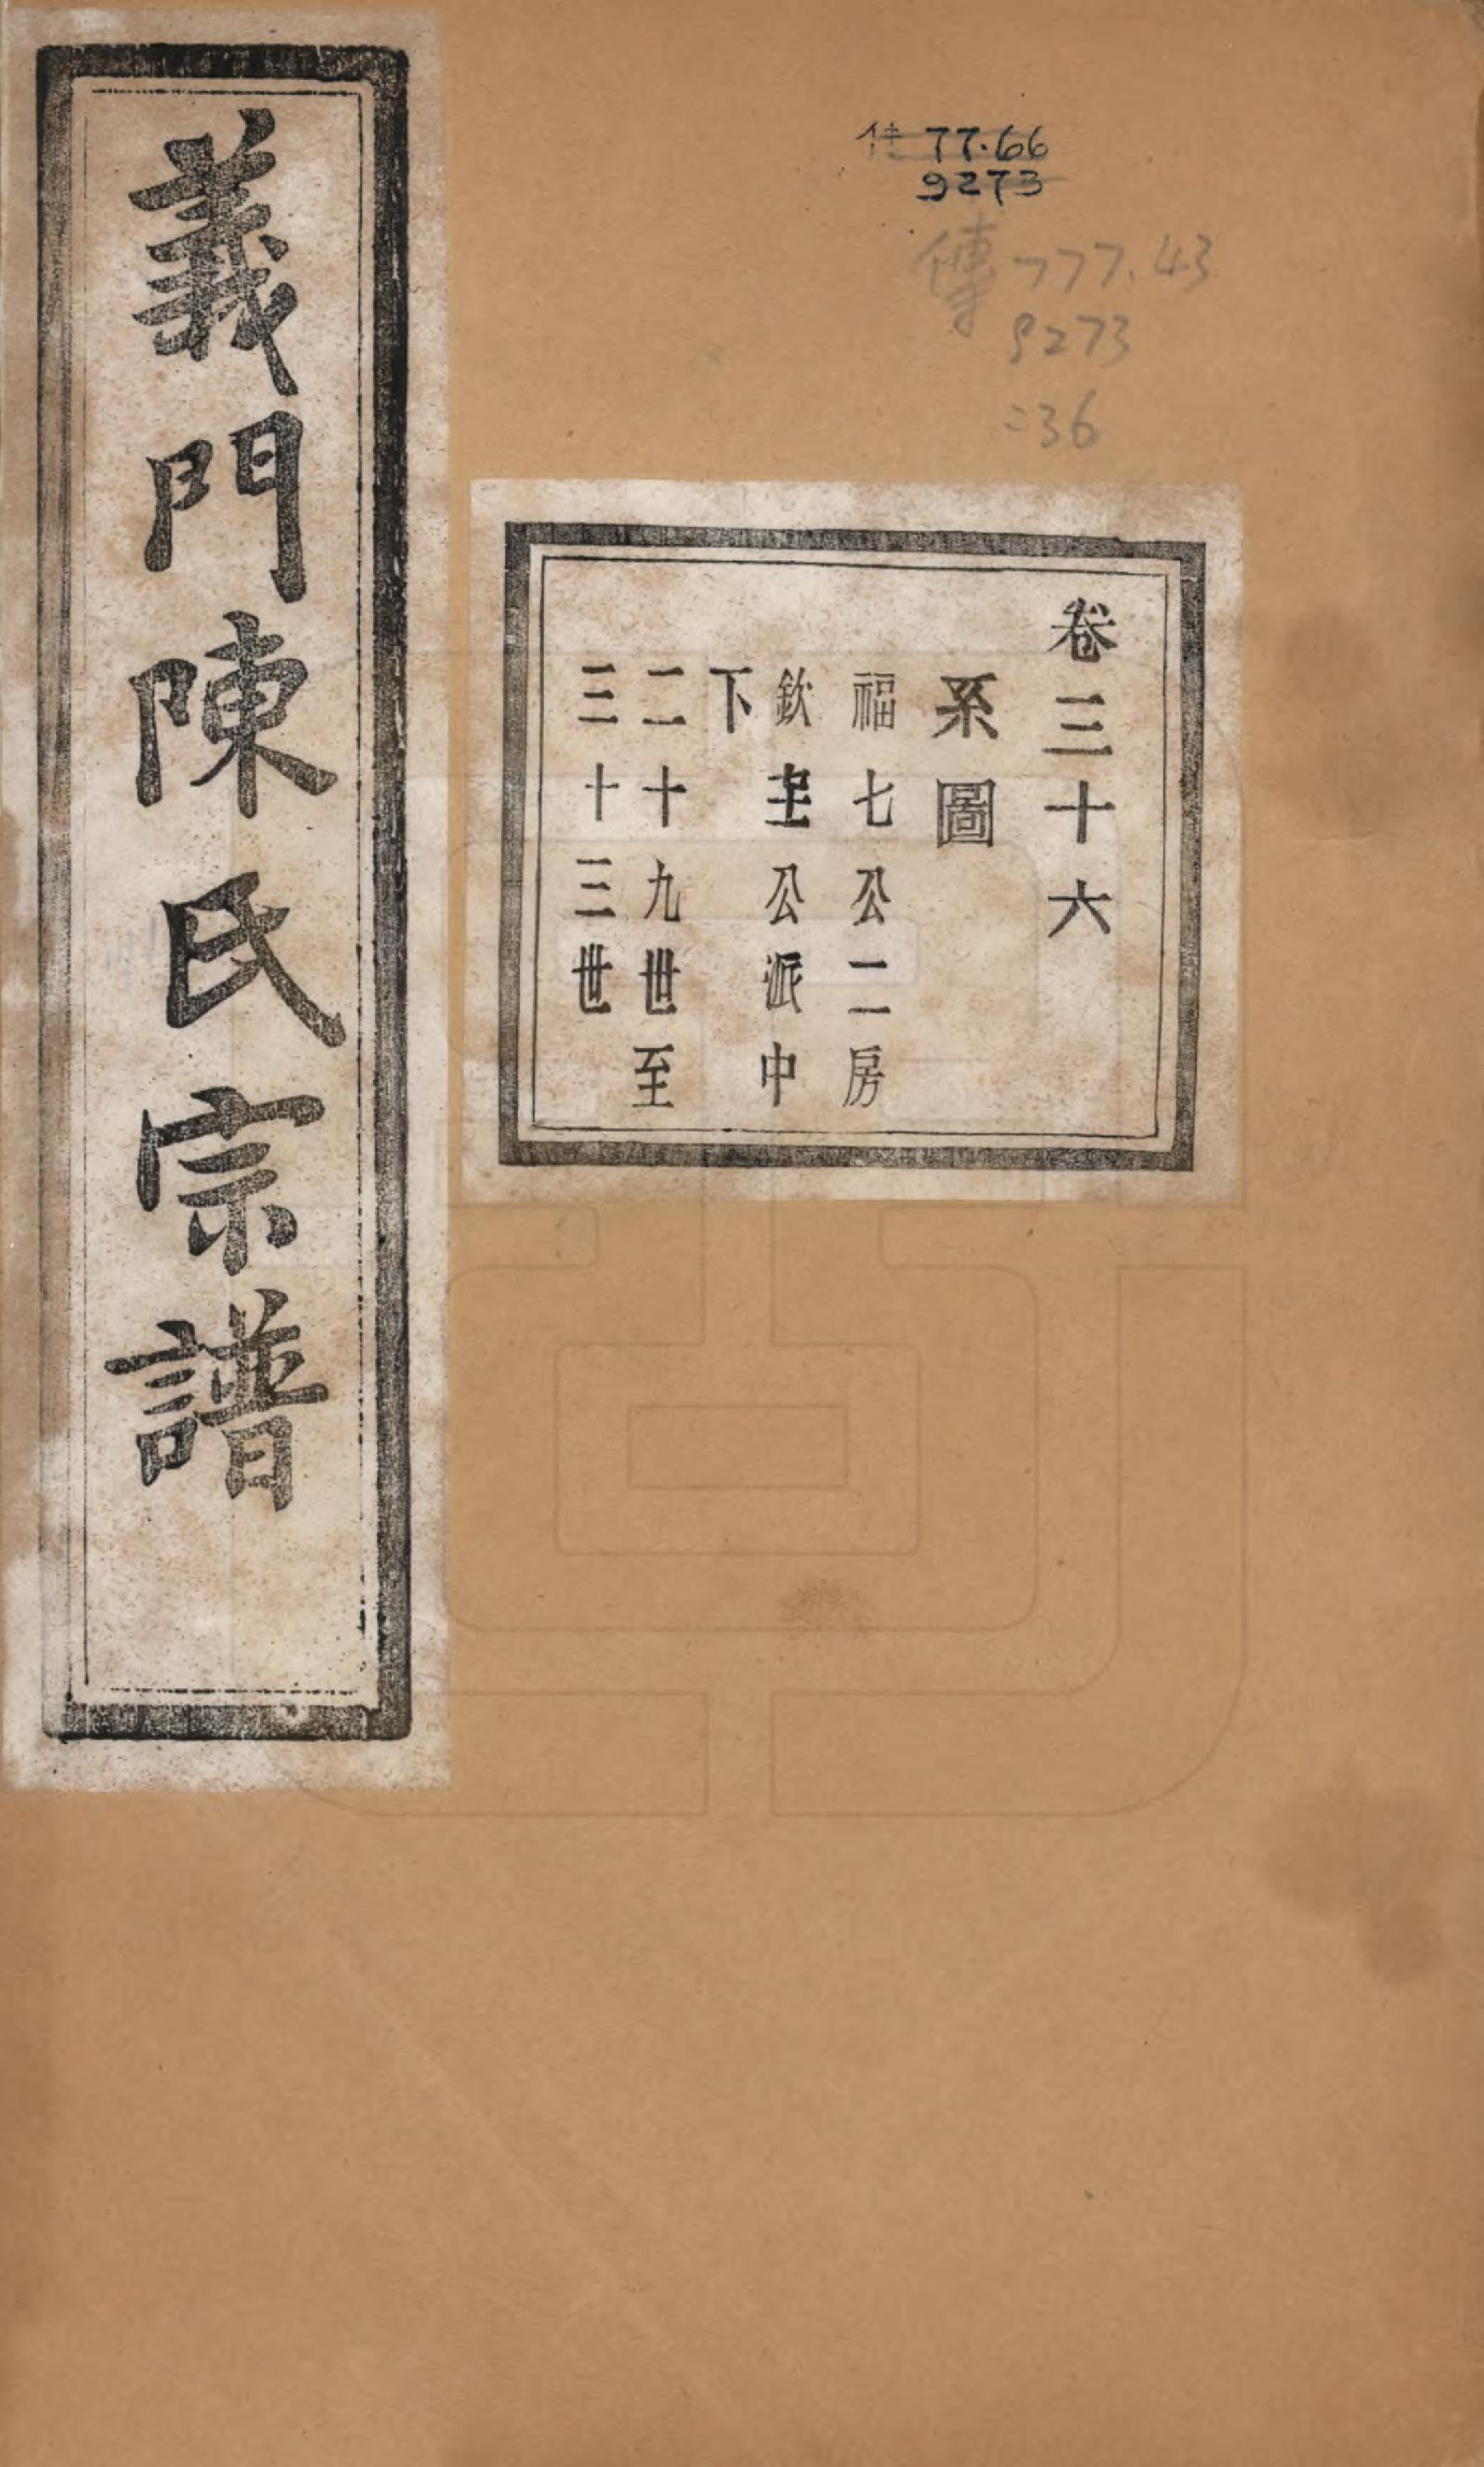 義門陳氏宗譜
77.66
9273
傳 777.43
9273
:36
卷三十六
系圖
福七公二房
欽公派中
下
二十九世至
三十三世